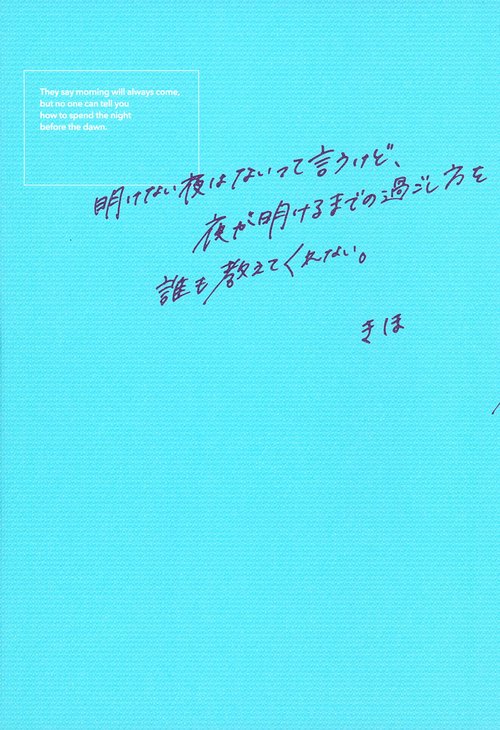 They say morning will always come,
but no one can tell you
how to spend the night
before the dawn.
明けない夜はないって言うけど、
夜が明けるまでの過ごし方を
誰も教えてくれない。
きほ